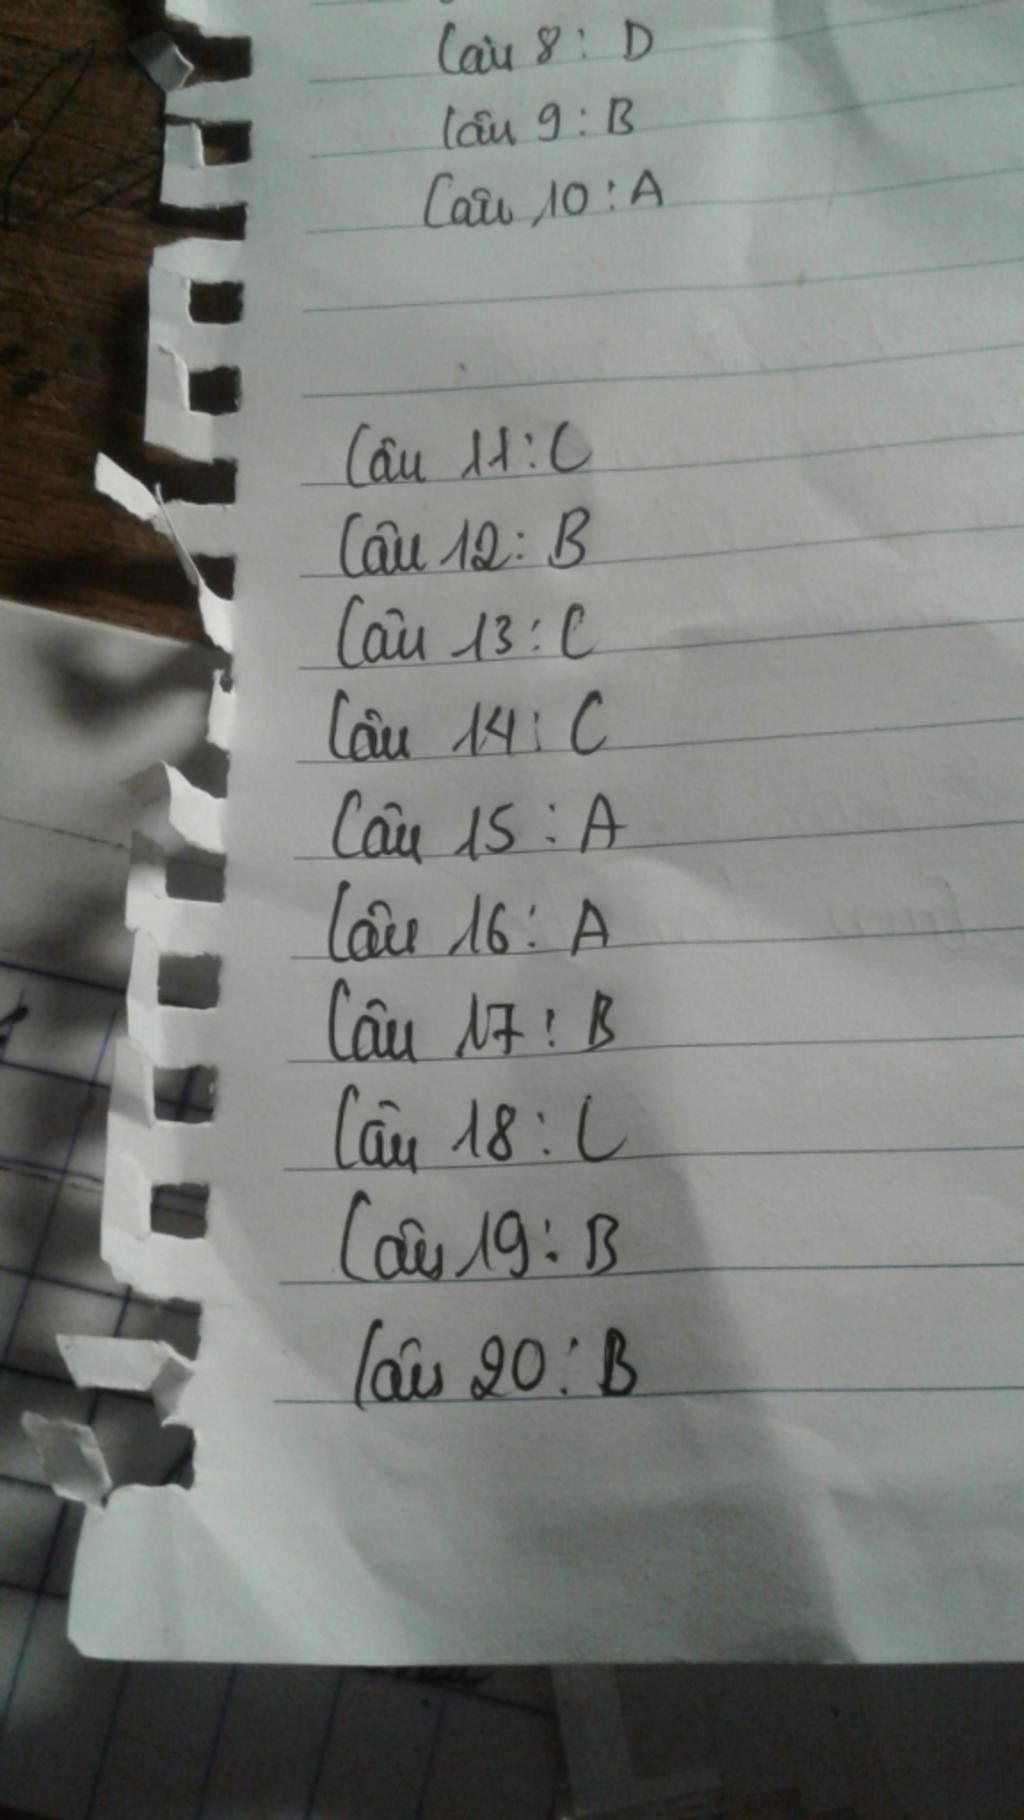 Câu 8: D
Câu 9: B
Câu 10: A
Câu 11: C
Câu 12: B
Câu 13: C
Câu 14: C
Câu 15: A
Câu 16: A
Câu 17: B
Câu 18: C
Câu 19: B
Câu 20: B